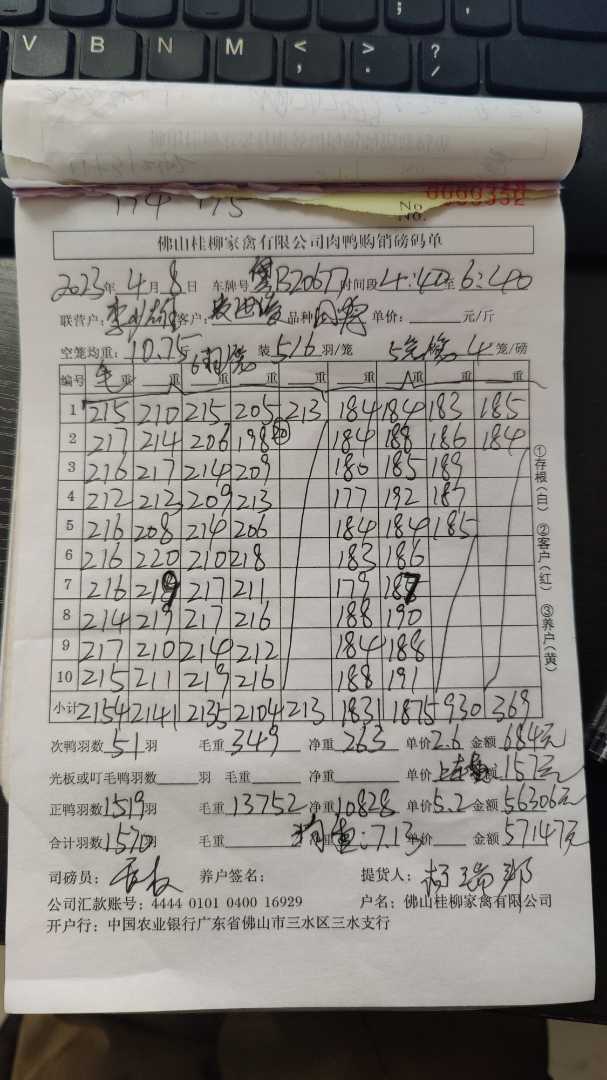 V B N M < , > . ? /
174 175
No 0000352
No.
佛山桂柳家禽有限公司肉鸭购销磅码单
2023年 4月 8日 车牌号 粤B2067T 时间段 4:40 至 6:40
联营户: 客户: 品种 单价: 元/斤
空笼均重: 10.75 装 5/6 羽/笼 4 笼/磅
编号 毛重 重 重 重 重 重 重 重 重
1 215 210 215 205 213 184 184 183 185
2 217 214 206 198 184 188 186 184
3 216 217 214 209 180 185 189
4 212 212 209 213 177 192 187
5 216 208 214 206 184 184 185
6 216 220 210 218 183 186
7 216 219 217 211 179 187
8 214 219 217 216 188 190
9 217 210 214 212 184 188
10 215 211 219 216 188 191
小计 2154 2141 2135 2104 213 1831 1875 930 369
①存根(白) ②客户(红) ③养户(黄)
次鸭羽数 51 羽 毛重 349 净重 263 单价 2.6 金额 684元
光板或叮毛鸭羽数 羽 毛重 净重 单价 金额 157元
正鸭羽数 1519 羽 毛重 13752 净重 10828 单价 5.2 金额 56306元
合计羽数 1570 羽 毛重 净重 均重:7.13 单价 金额 57147元
司磅员: 养户签名: 提货人: 杨瑞邦
公司汇款账号: 4444 0101 0400 16929 户名: 佛山桂柳家禽有限公司
开户行: 中国农业银行广东省佛山市三水区三水支行